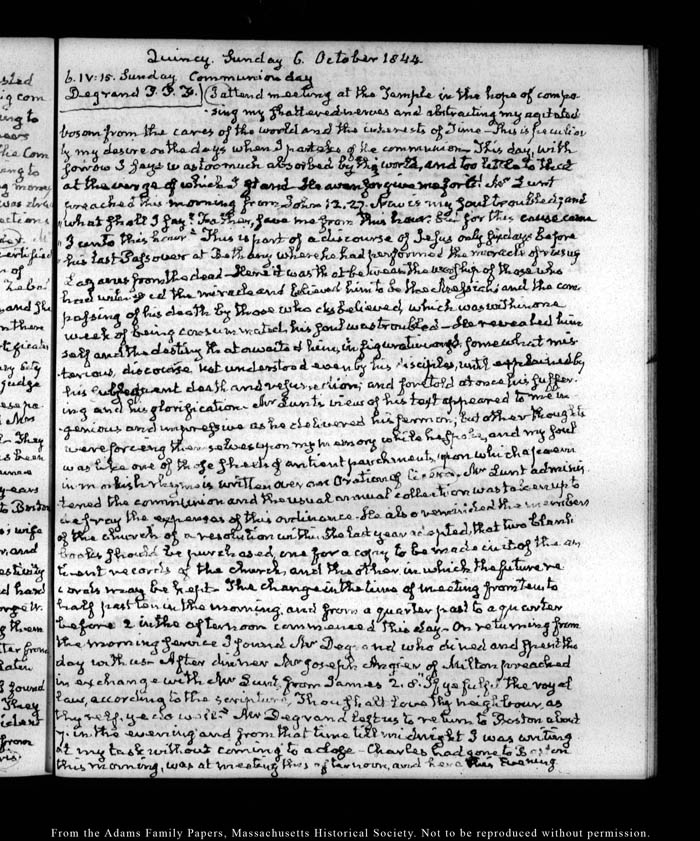 Quincy. Sunday 6. October 1844.
6. IV:15. Sunday. Communion day
Degrand P. P. F. I attend meeting at the Temple in the hope of compo
sing my shattered nerves and abstracting my agitated
bosom from the cares of the world and the interests of Time – This is peculiar
ly my desire on the days when I partake of the communion – This day, with
sorrow I say I was too much absorbed by this world, and too little to that
at the verge of which I stand. Heaven forgive me for it! Mr Lunt
preached this morning from John 12. 27. Now is my soul troubled; and
what shall I say? Father, save me from this hour. But for this cause came
I unto this hour. This is part of a discourse of Jesus only six days before
his last Passover at Bethany where he had performed the miracle of raising
Lazarus from the dead – Here it was that between the worship of those who
had witnessed the miracle and believed him to be the Messiah; and the com
passing of his death by those who disbelieved, which was within one
week of being consummated, his soul was troubled – He revealed him
self and the destiny that awaited him, in figurative and somewhat mis
terious, discourse not understood even by his disciples, until explained by
his subsequent death and resurrection; and foretold at once his suffer
ing and his glorification. Mr Lunt's view of his text appeared to me in
genious and impressive as he delivered his sermon, but other thoughts
were forcing themselves upon my memory while he spoke, and my soul
was like one of those sheets of antient parchments, upon which a
in monkish rhyme is written over an Oration of Cicero. Mr Lunt adminis
tered the communion and the usual annual collection was taken up to
defray the expenses of this ordinance. He also reminded the members
of the church of a resolution within the last year adopted, that two blank
books should be purchased, one for a copy to be made in it of the an
tient records of the church, and the other in which the future re
cords may be kept. The change in the time of meeting from ten to
half past ten in the morning, and from a quarter past to a quarter
before 2 in the afternoon commenced this day – On returning from
the morning service I found Mr Degrand who dined and spent the
day with us. After dinner Mr Joseph Angier of Milton preached
in exchange with Mr Lunt, from James 2. 8. If ye fulfil the royal
law, according to the scripture, Thou shalt love thy neighbour, as
thyself, ye do well. Mr Degrand left us to return to Boston about
7. in the evening and from that time till midnight I was writing
at my task without coming to a close – Charles had gone to Boston
this morning, was at meeting this afternoon, and here this Evening.
From the Adams Family Papers, Massachusetts Historical Society. Not to be reproduced without permission.